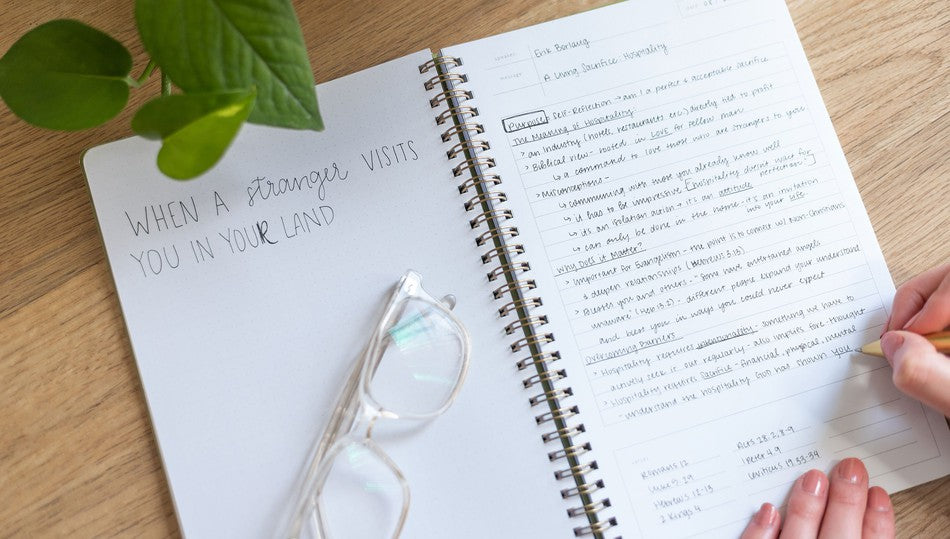 WHEN A stranger VISITS
YOU IN YOUR LAND
speaker Erik Borlaug
message A Living Sacrifice: Hospitality
Purpose: Self-Reflection → am I a perfect & acceptable sacrifice
The Meaning of Hospitality:
> an Industry (hotels, restaurants etc.) directly tied to profit
> Biblical view - rooted in LOVE for fellow man
↳ a command to love those who are strangers to you
> Misconceptions -
↳ communing with those you already know well
↳ it has to be impressive [hospitality doesn't wait for perfection!]
↳ its an isolation action → it's an attitude
↳ can only be done in the home - it's an invitation into your life
Why Does it Matter?
> Important for Evangelism - the point is to connect w/ Non-Christians
& deepen relationships (Hebrews 3:13)
> Blesses you and others - Some have entertained angels
unaware (Heb. 13:2) - different people expand your understanding
and bless you in ways you could never expect
Overcoming Barriers
> Hospitality requires intentionality - something we have to
actively seek it our regularly - also implies fore-thought
> Hospitality requires Sacrifice - financial, physical, mental
- understand the hospitality God has shown you
Romans 12
Acts 28:2, 8-9
1 Peter 4:9
Hebrews 12-13
Leviticus 19:33-34
2 Kings 4